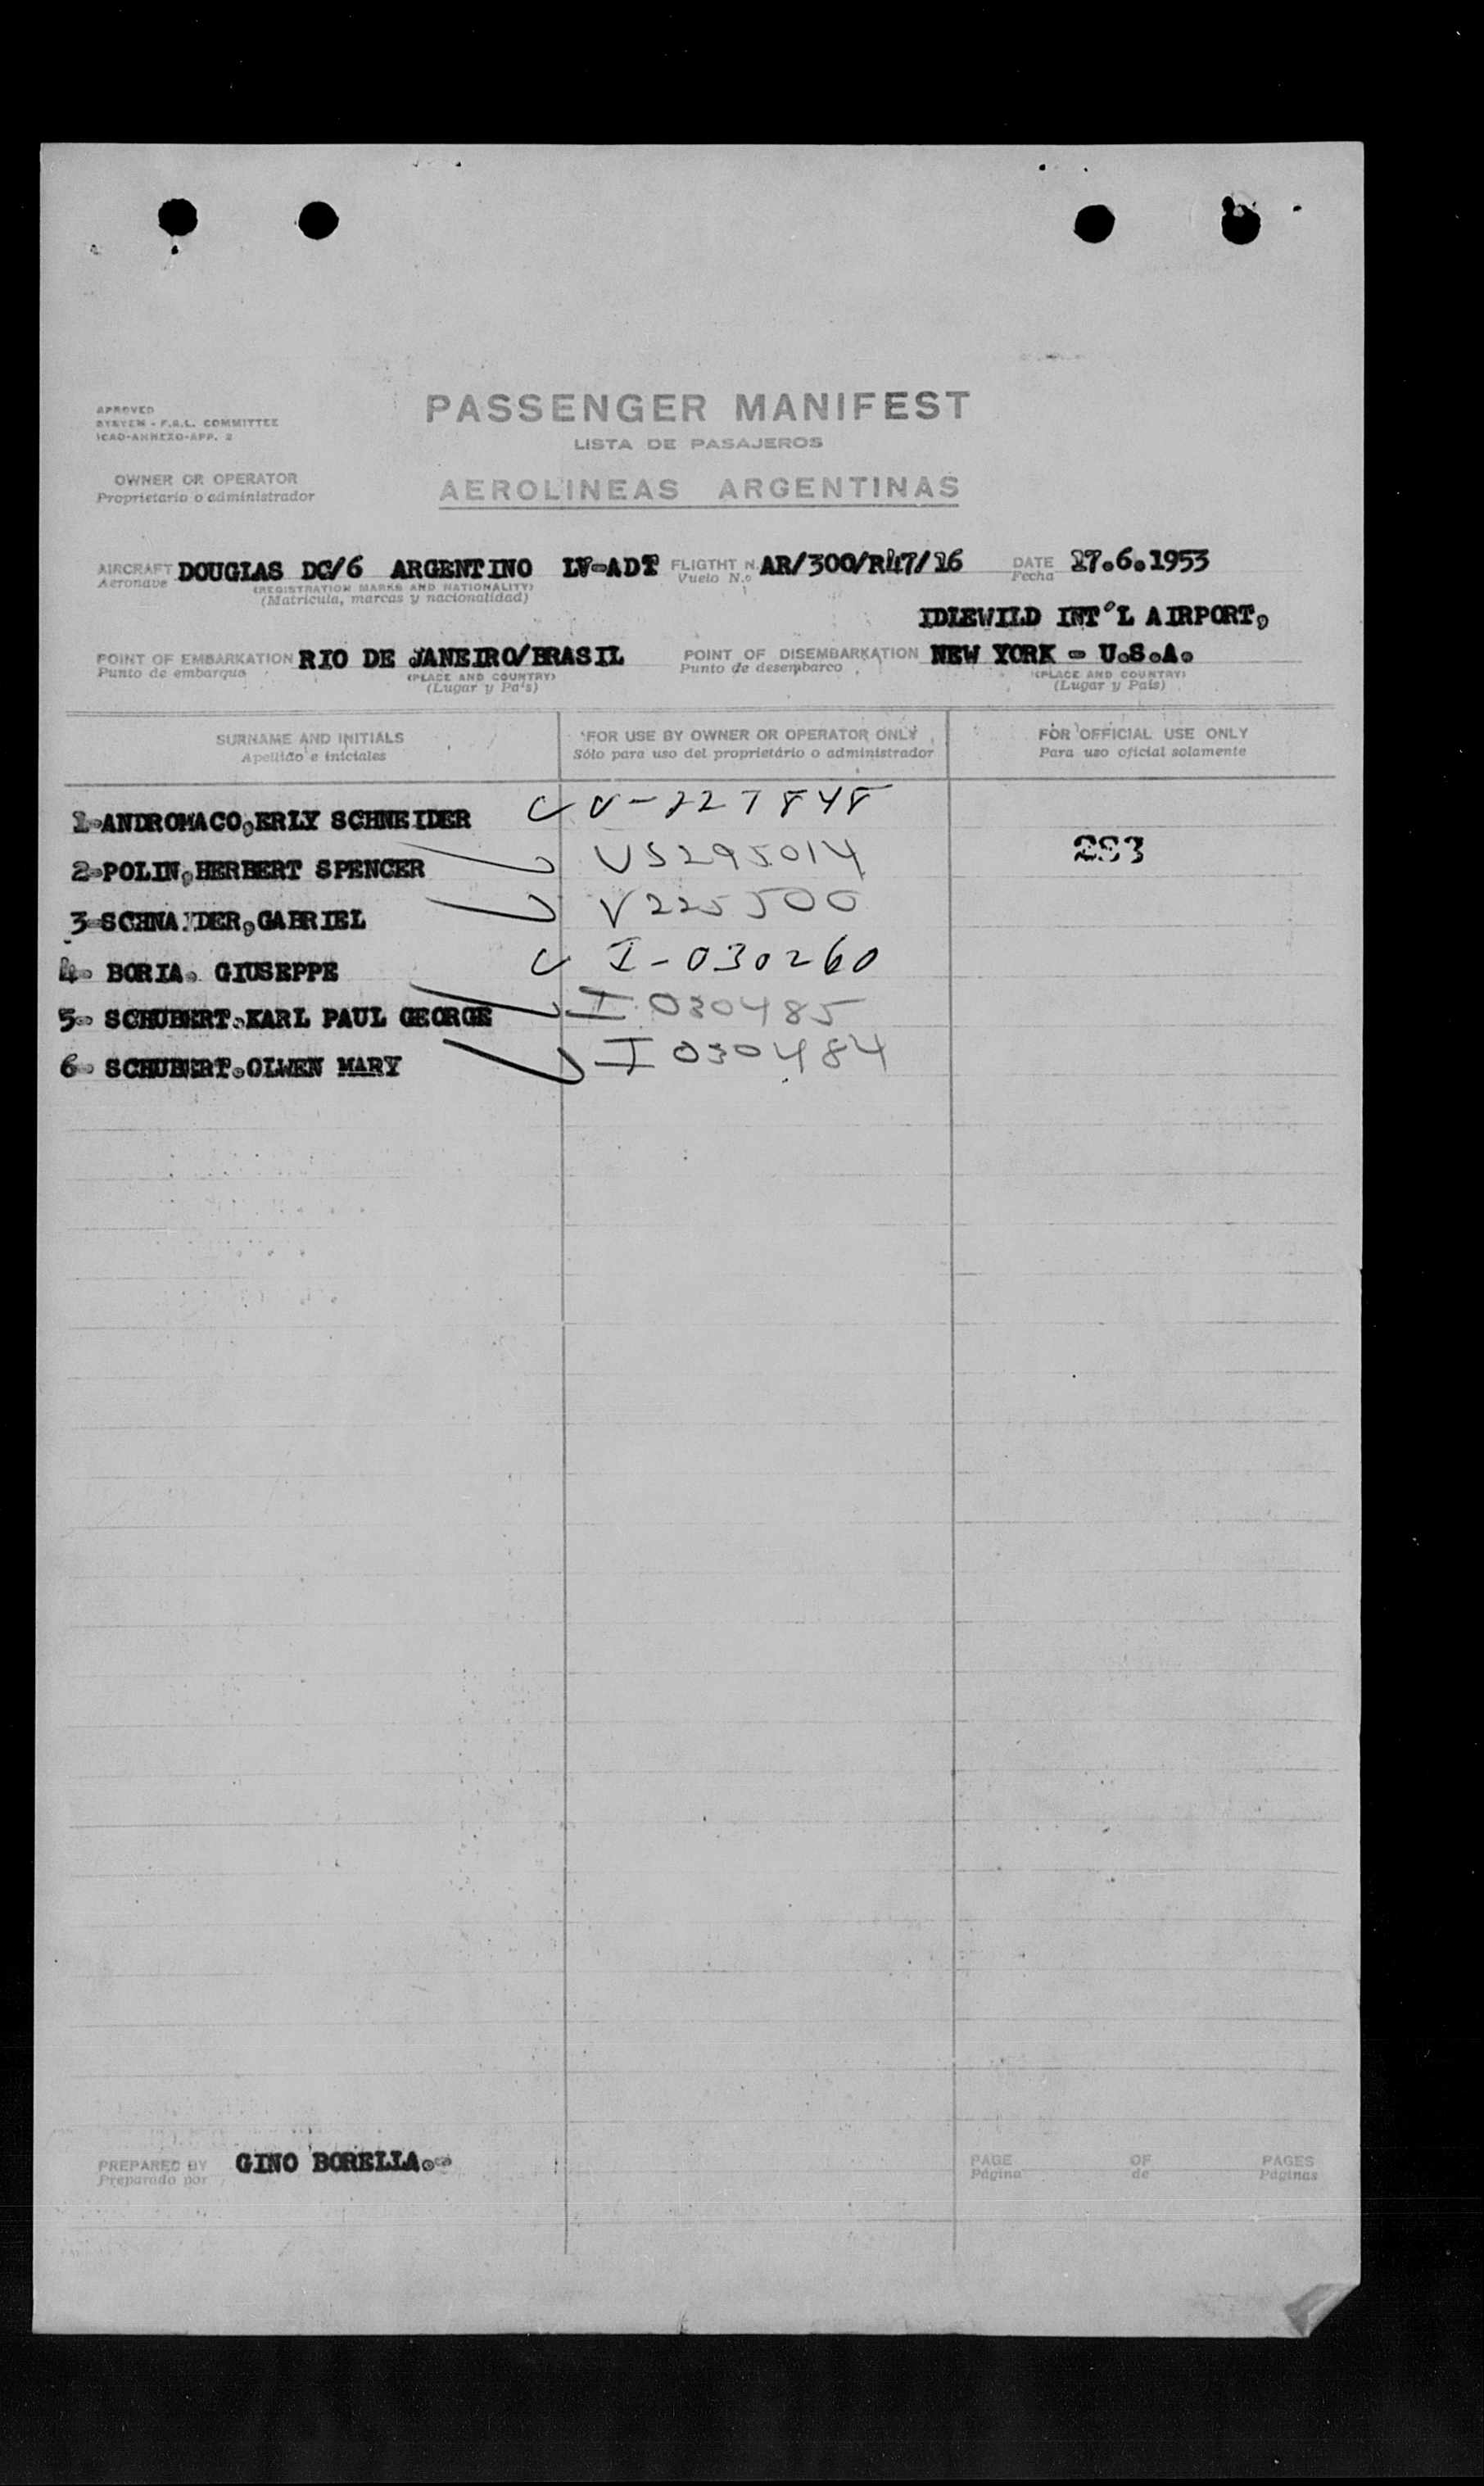 APROVED
SYSTEM - F.A.L. COMMITTEE
ICAO-ANNEXO-APP. 2
PASSENGER MANIFEST
LISTA DE PASAJEROS
OWNER OR OPERATOR
Proprietario o administrador
AEROLINEAS ARGENTINAS
AIRCRAFT DOUGLAS DC/6 ARGENTINO LV-ADT FLIGTHT N. AR/300/R47/16 DATE 17.6.1953
Aeronave (REGISTRATION MARKS AND NATIONALITY) Vuelo N.o Fecha
(Matricula, marcas y nacionalidad)
IDLEWILD INT'L AIRPORT,
POINT OF EMBARKATION RIO DE JANEIRO/BRASIL POINT OF DISEMBARKATION NEW YORK - U.S.A.
Punto de embarque (PLACE AND COUNTRY) Punto de desembarco (PLACE AND COUNTRY)
(Lugar y País) (Lugar y País)
SURNAME AND INITIALS FOR USE BY OWNER OR OPERATOR ONLY FOR OFFICIAL USE ONLY
Apellido e iniciales Sólo para uso del proprietário o administrador Para uso oficial solamente
1-ANDROMACO,ERLY SCHNEIDER V-227848
2-POLIN,HERBERT SPENCER US295014 283
3-SCHNAIDER,GABRIEL V225500
4- BORIA. GIUSEPPE I-030260
5- SCHUBERT.KARL PAUL GEORGE I 030485
6- SCHUBERT.OLWEN MARY I 030484
PREPARED BY GINO BORELLA.- PAGE OF PAGES
Preparado por Página de Páginas